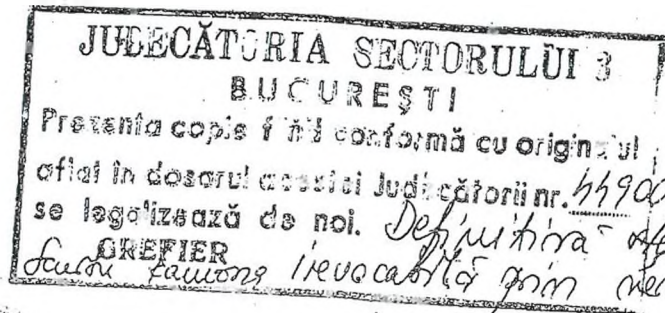 JUDECĂTORIA SECTORULUI 3
BUCUREŞTI
Prezenta copie fiind conformă cu originalul
aflat în dosarul acestei Judecătorii nr. 44900
se legalizează de noi. Definitivă
GREFIER
irevocabilă prin